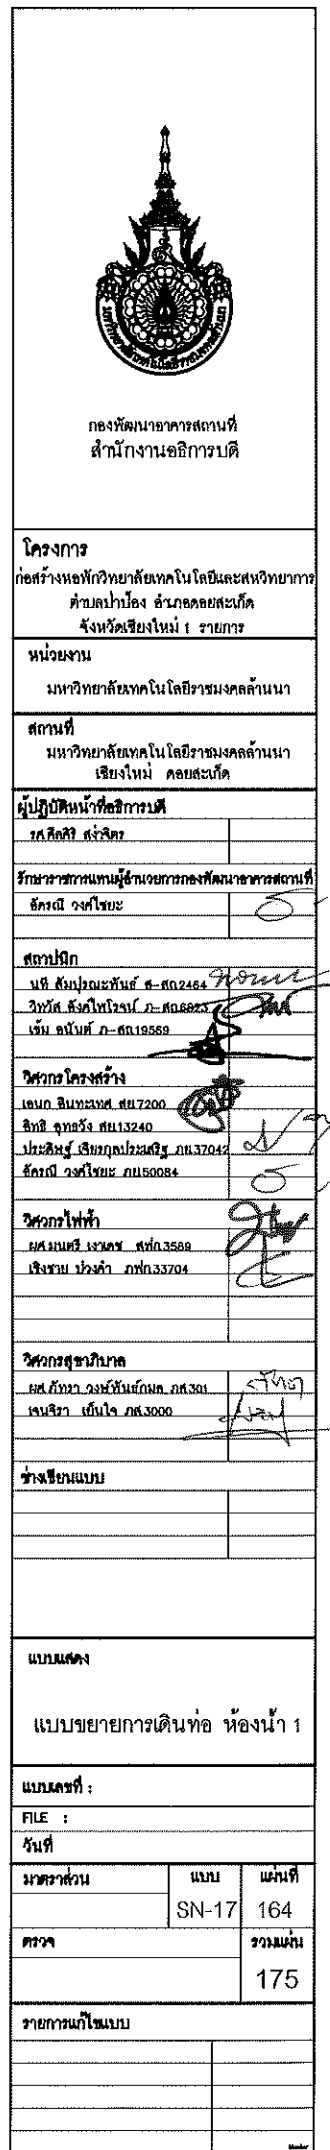 กองพัฒนาอาคารสถานที่
สำนักงานอธิการบดี
โครงการ
ก่อสร้างหอพักวิทยาลัยเทคโนโลยีและสหวิทยาการ
ตำบลป่าป้อง อำเภอดอยสะเก็ด
จังหวัดเชียงใหม่ 1 รายการ
หน่วยงาน
มหาวิทยาลัยเทคโนโลยีราชมงคลล้านนา
สถานที่
มหาวิทยาลัยเทคโนโลยีราชมงคลล้านนา
เชียงใหม่ ดอยสะเก็ด
ผู้ปฏิบัติหน้าที่อธิการบดี
รศ.ศีลศิริ สง่าจิตร
รักษาราชการแทนผู้อำนวยการกองพัฒนาอาคารสถานที่
อัครณี วงค์ไชยะ
สถาปนิก
นที สัมปุรณะพันธ์ ส-สถ2464
วิทวัส สิงค์ไพโรจน์ ภ-สถ6823
เข้ม อนันต์ ภ-สถ19569
วิศวกรโครงสร้าง
เอนก สินทะเทศ สย7200
สิทธิ สุทธวัง สย13240
ประดิษฐ์ เจียรกุลประเสริฐ ภย37042
อัครณี วงค์ไชยะ ภย50084
วิศวกรไฟฟ้า
ผศ.มนตรี เงาเดช สฟก.3589
เชิงชาย บ่วงคำ ภฟก.33704
วิศวกรสุขาภิบาล
ผศ.ภัทรา วงษ์พันธ์กมล ภส.301
เจนจิรา เย็นใจ ภส.3000
ช่างเขียนแบบ
แบบแสดง
แบบขยายการเดินท่อ ห้องน้ำ 1
แบบเลขที่ :
FILE :
วันที่
มาตราส่วน แบบ แผ่นที่
SN-17 164
ตรวจ รวมแผ่น
175
รายการแก้ไขแบบ